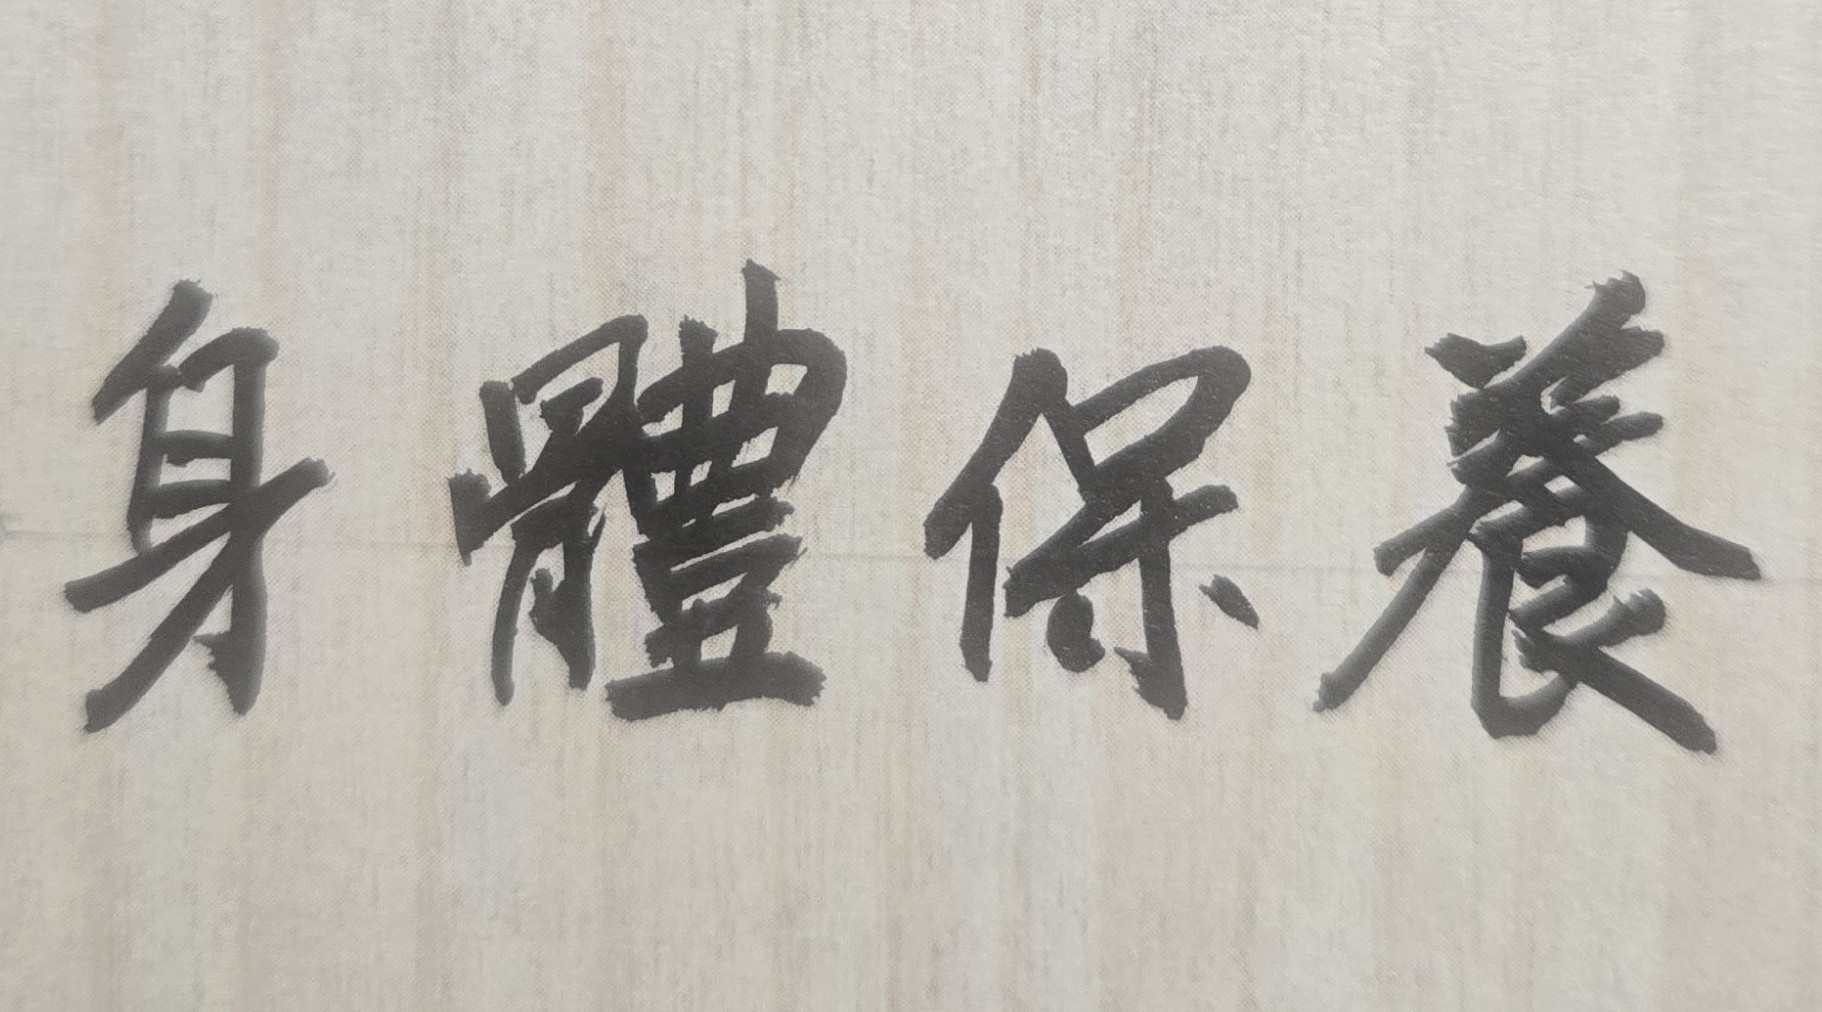 身體保養